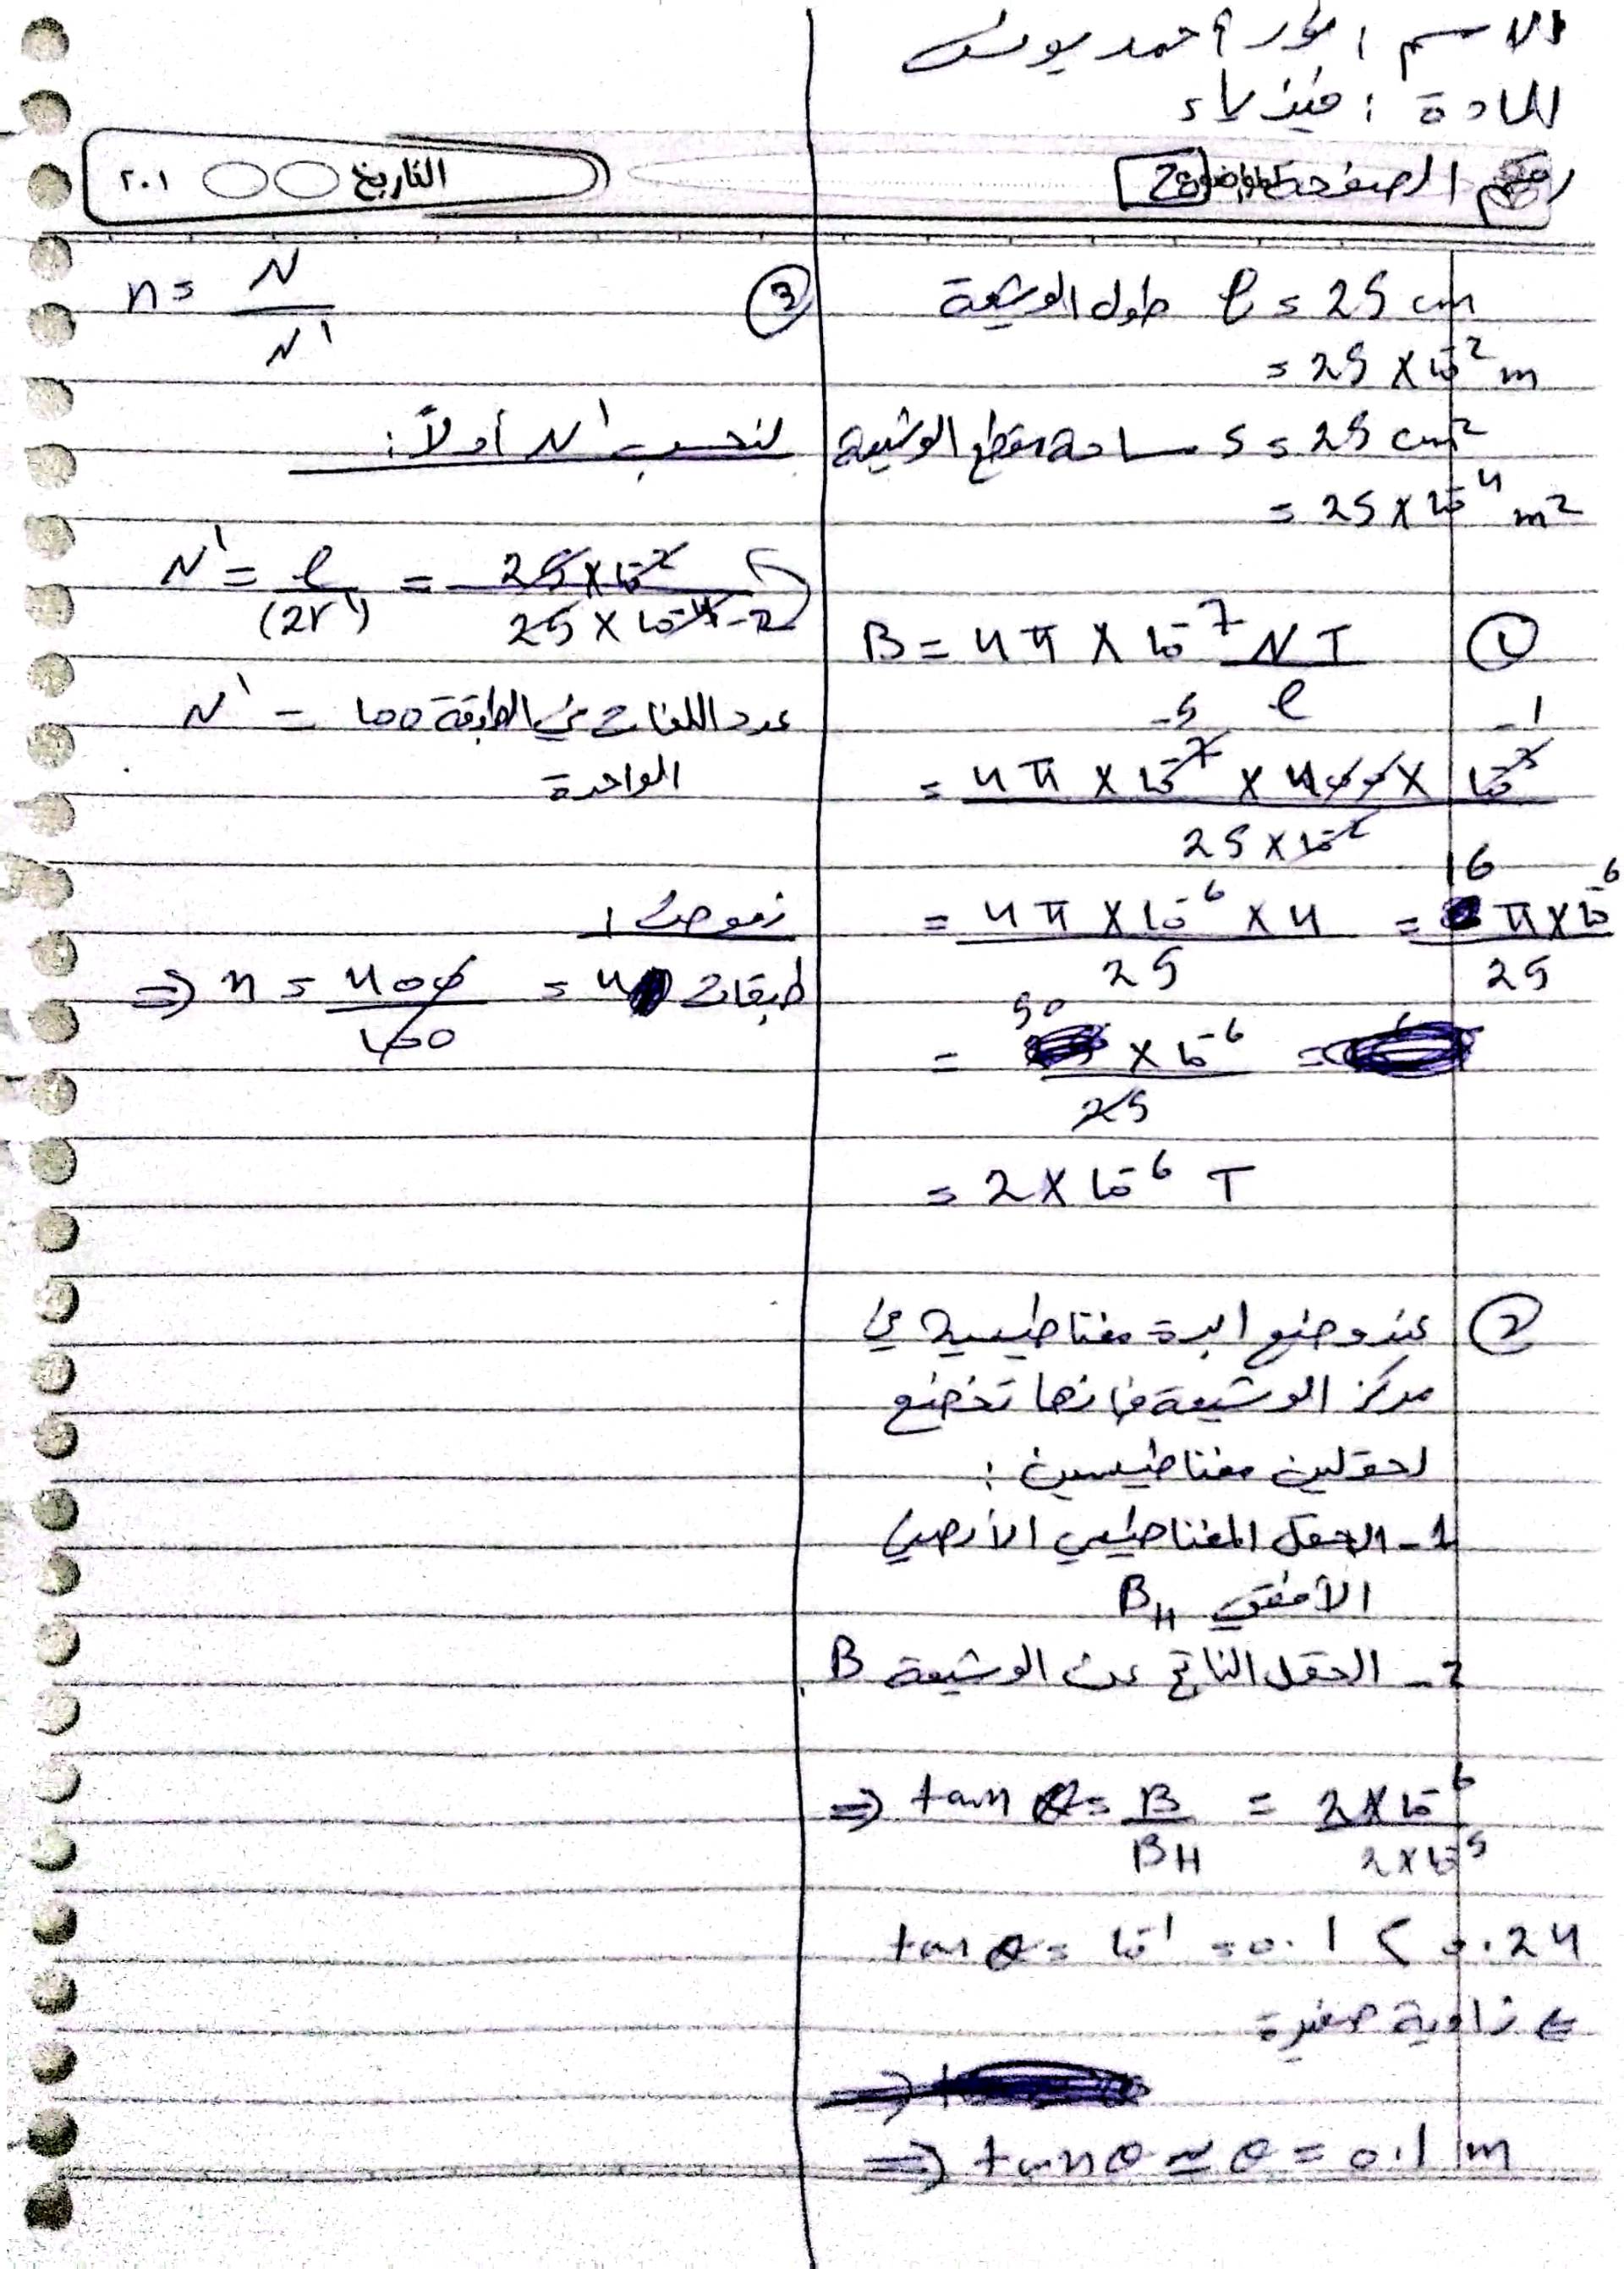 الاسم : نور أحمد يونس
المادة : فيزياء
رقم الصفحة 2
التاريخ ٢٠١
طول الوشيعة l = 25 cm
= 25 × 10⁻² m
مساحة مقطع الوشيعة s = 25 cm²
= 25 × 10⁻⁴ m²
① B = 4π × 10⁻⁷ NI / l
= 4π × 10⁻⁷ × 400 × 10⁻³ / 25 × 10⁻²
-5 -1
= 4π × 10⁻⁶ × 4 / 25 = 16 π × 10⁻⁶ / 25
= 50 × 10⁻⁶ / 25
= 2 × 10⁻⁶ T
② عند وضع ابرة مغناطيسية في
مركز الوشيعة فإنها تخضع
لحقلين مغناطيسيين :
1- الحقل المغناطيسي الأرضي
الأفقي B_H
2- الحقل الناتج عن الوشيعة B
⇒ tan θ = B / BH = 2 × 10⁻⁶ / 2 × 10⁻⁵
tan θ = 10⁻¹ = 0.1 < 0.24
⇐ زاوية صغيرة
⇒ tan θ ≃ θ = 0.1 m
③ n = N / N'
لنحسب N' أولاً :
N' = l / (2r') = 25 × 10⁻² / 25 × 10⁻⁴ -2
N' = 100 عدد اللفات في الطبقة
الواحدة
نعوض :
⇒ n = 400 / 100 = 4 طبقات